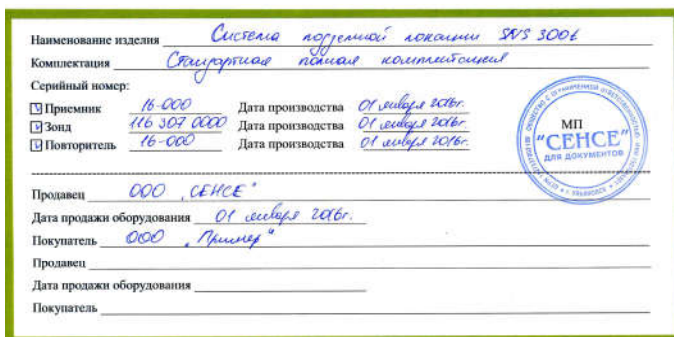 Наименование изделия Система подземной локации SNS 300t
Комплектация Стандартная полная комплектация
Серийный номер:
Приемник 16-000 Дата производства 01 января 2016г.
Зонд 116 307 0000 Дата производства 01 января 2016г.
Повторитель 16-000 Дата производства 01 января 2016г.
МП
"СЕНСЕ"
ДЛЯ ДОКУМЕНТОВ
Продавец ООО „СЕНСЕ"
Дата продажи оборудования 01 января 2016г.
Покупатель ООО „Пример"
Продавец
Дата продажи оборудования
Покупатель